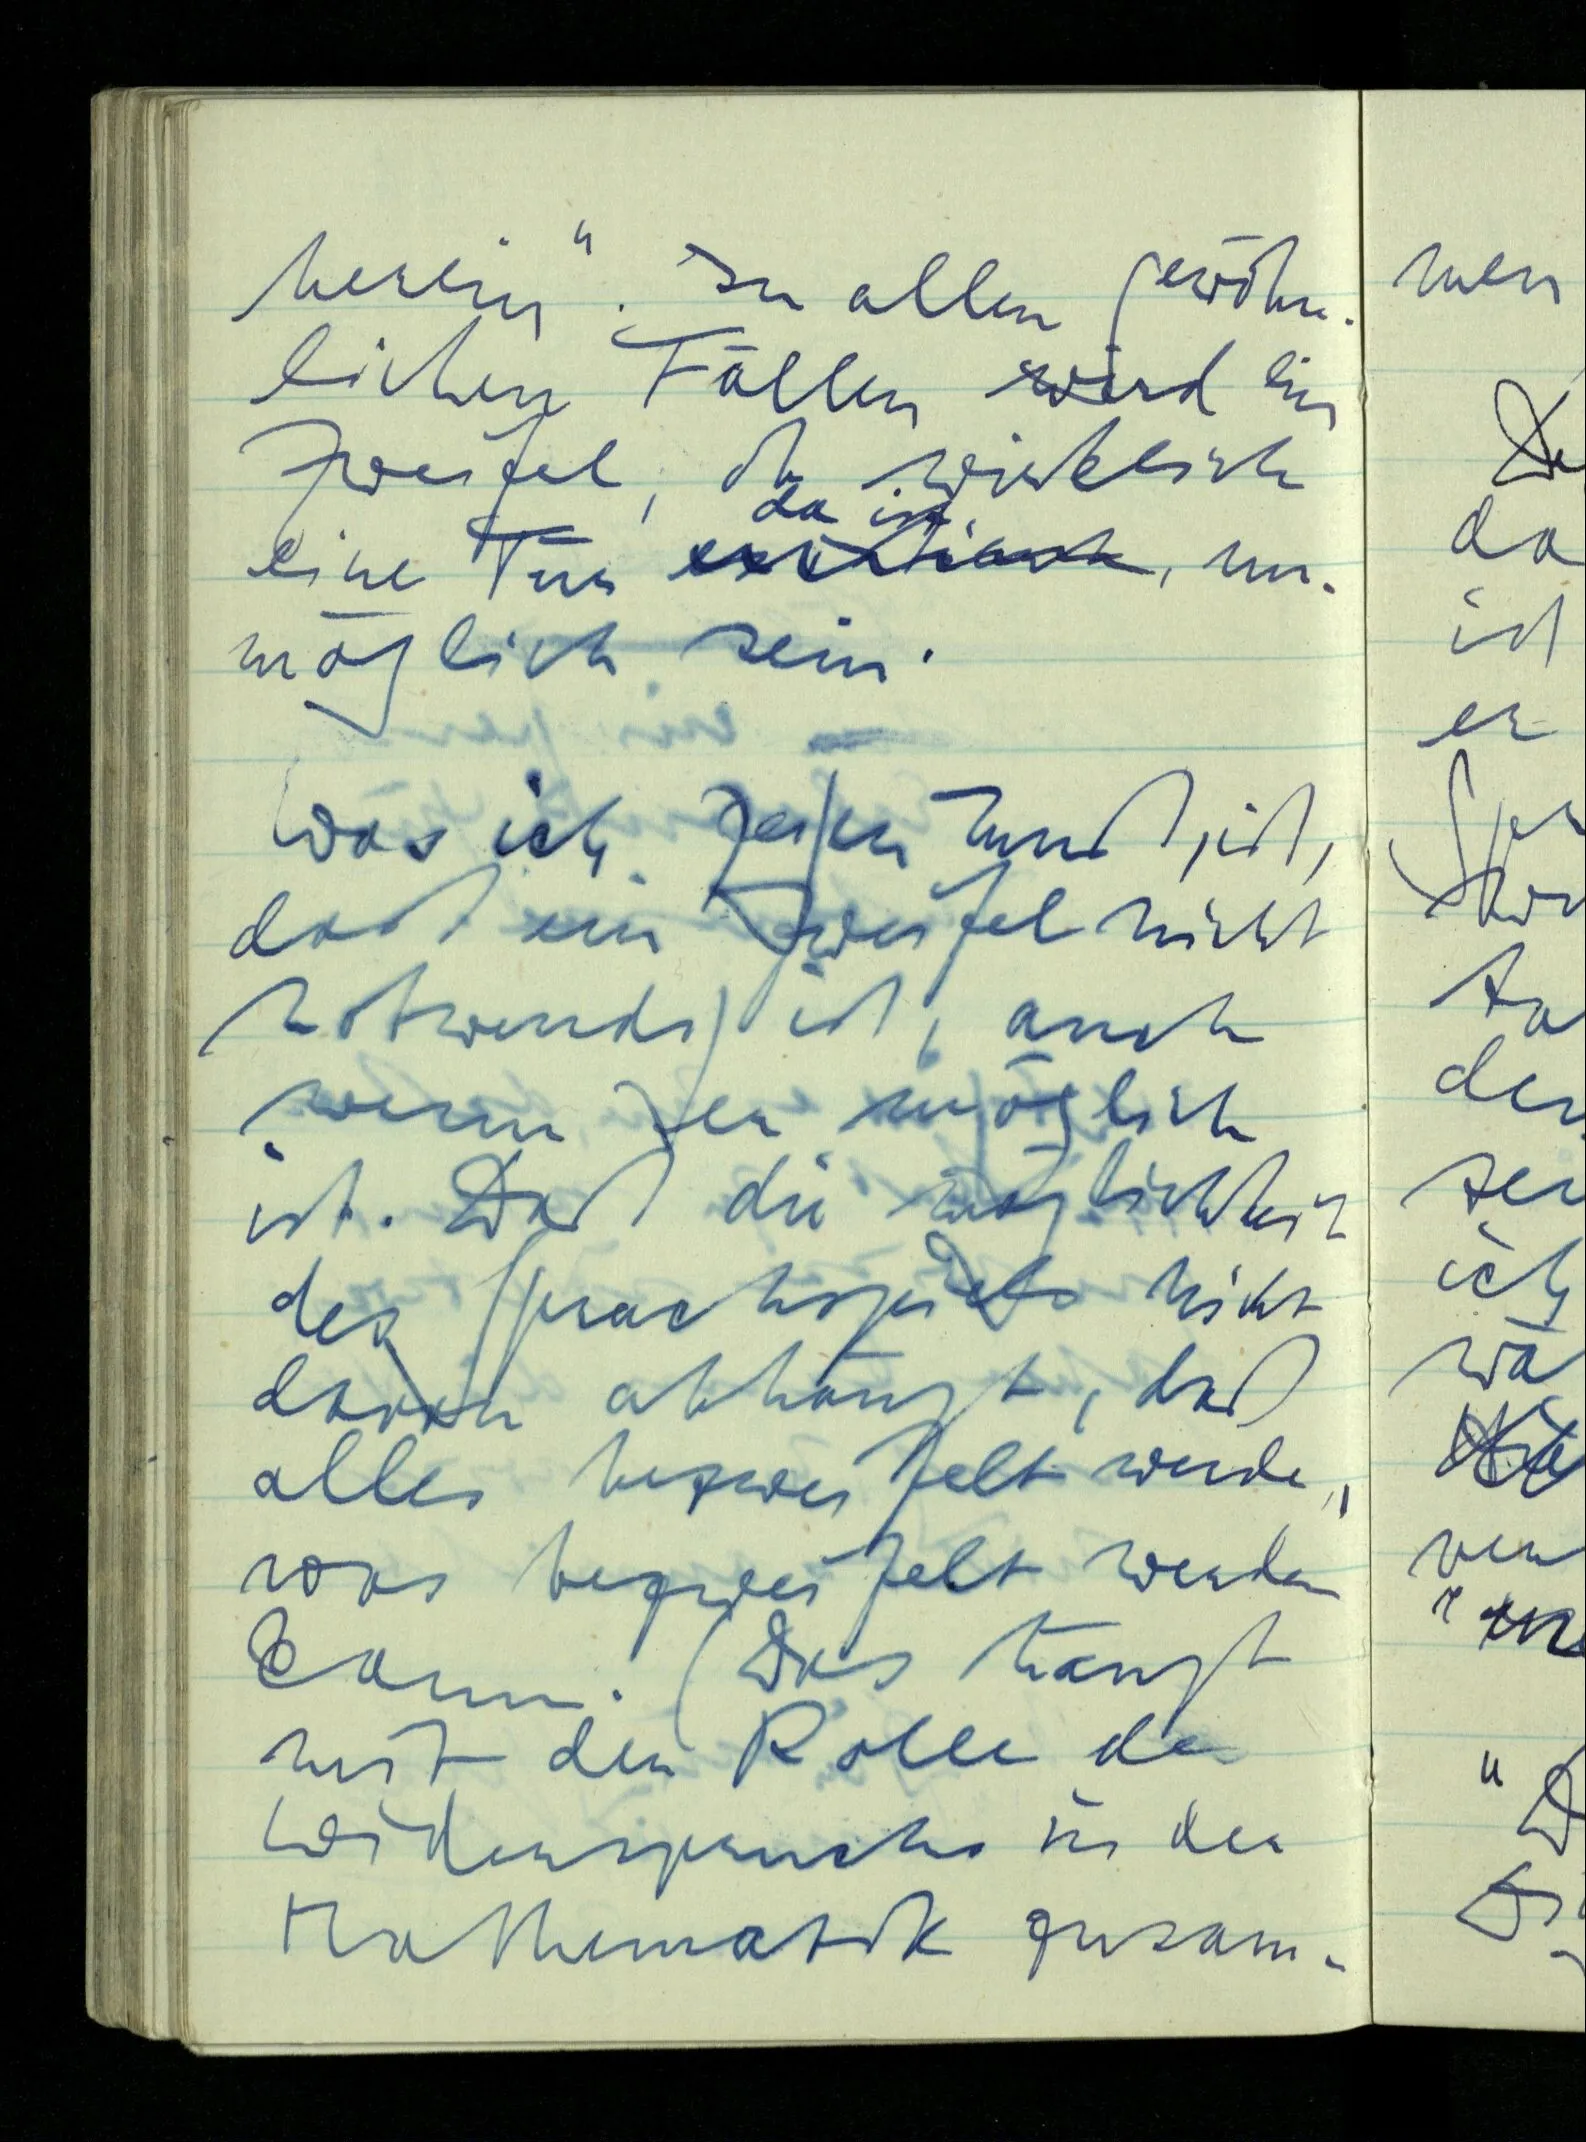 herein". In allen gewöhn-
lichen Fällen wird ein
Zweifel, ob wirklich
da ist
eine Tür existiert, un-
möglich sein.
Was ich zeigen muß, ist,
daß ein Zweifel nicht
notwendig ist, auch
wenn er möglich
ist. Daß die Möglichkeit
des Sprachspiels nicht
davon abhängt, daß
alles bezweifelt werde,
was bezweifelt werden
kann. (Das hängt
mit der Rolle des
Widerspruchs in der
Mathematik zusam-
men
da
ist
er
ich